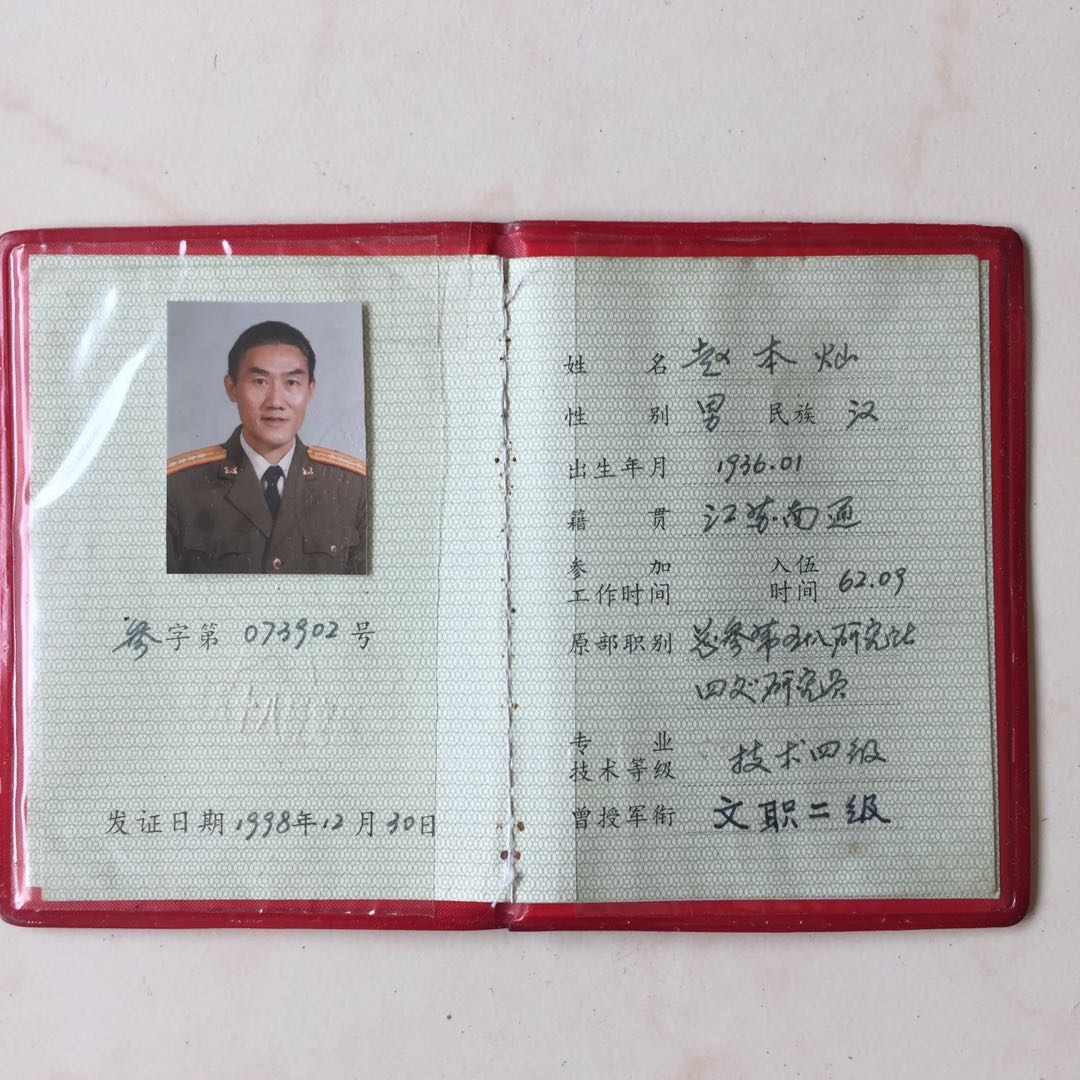 参字第 073902 号
发证日期 1998年12月30日
姓名 赵本灿
性别 男 民族 汉
出生年月 1936.01
籍贯 江苏南通
参加工作时间 入伍时间 62.09
原部职别 总参第五八研究所
四处研究员
专业技术等级 技术四级
曾授军衔 文职二级